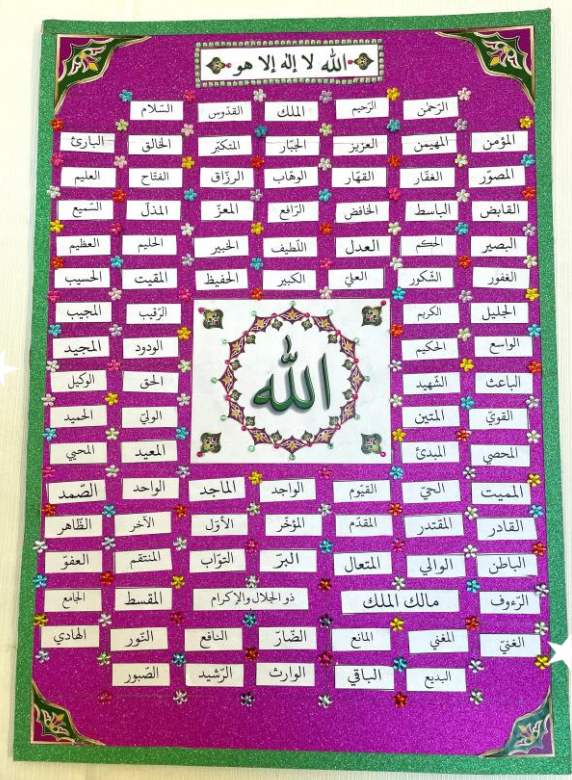 الله لا إله إلا هو
الرّحمٰن الرّحيم الملك القدّوس السّلام
المؤمن المهيمن العزيز الجبّار المتكبّر الخالق البارئ
المصوّر الغفّار القهّار الوهّاب الرزّاق الفتّاح العليم
القابض الباسط الخافض الرّافع المعزّ المذلّ السّميع
البصير الحكم العدل اللّطيف الخبير الحليم العظيم
الغفور الشّكور العليّ الكبير الحفيظ المقيت الحسيب
الجليل الكريم الرّقيب المجيب
الواسع الحكيم الودود المجيد
الله
الباعث الشّهيد الحق الوكيل
القويّ المتين الوليّ الحميد
المحصي المبدئ المعيد المحيي
المميت الحيّ القيّوم الواجد الماجد الواحد الصّمد
القادر المقتدر المقدّم المؤخّر الأوّل الآخر الظّاهر
الباطن الوالي المتعال البرّ التوّاب المنتقم العفوّ
الرّءوف مالك الملك ذو الجلال والإكرام المقسط الجامع
الغنيّ المغني المانع الضّارّ النافع النّور الهادي
البديع الباقي الوارث الرّشيد الصّبور